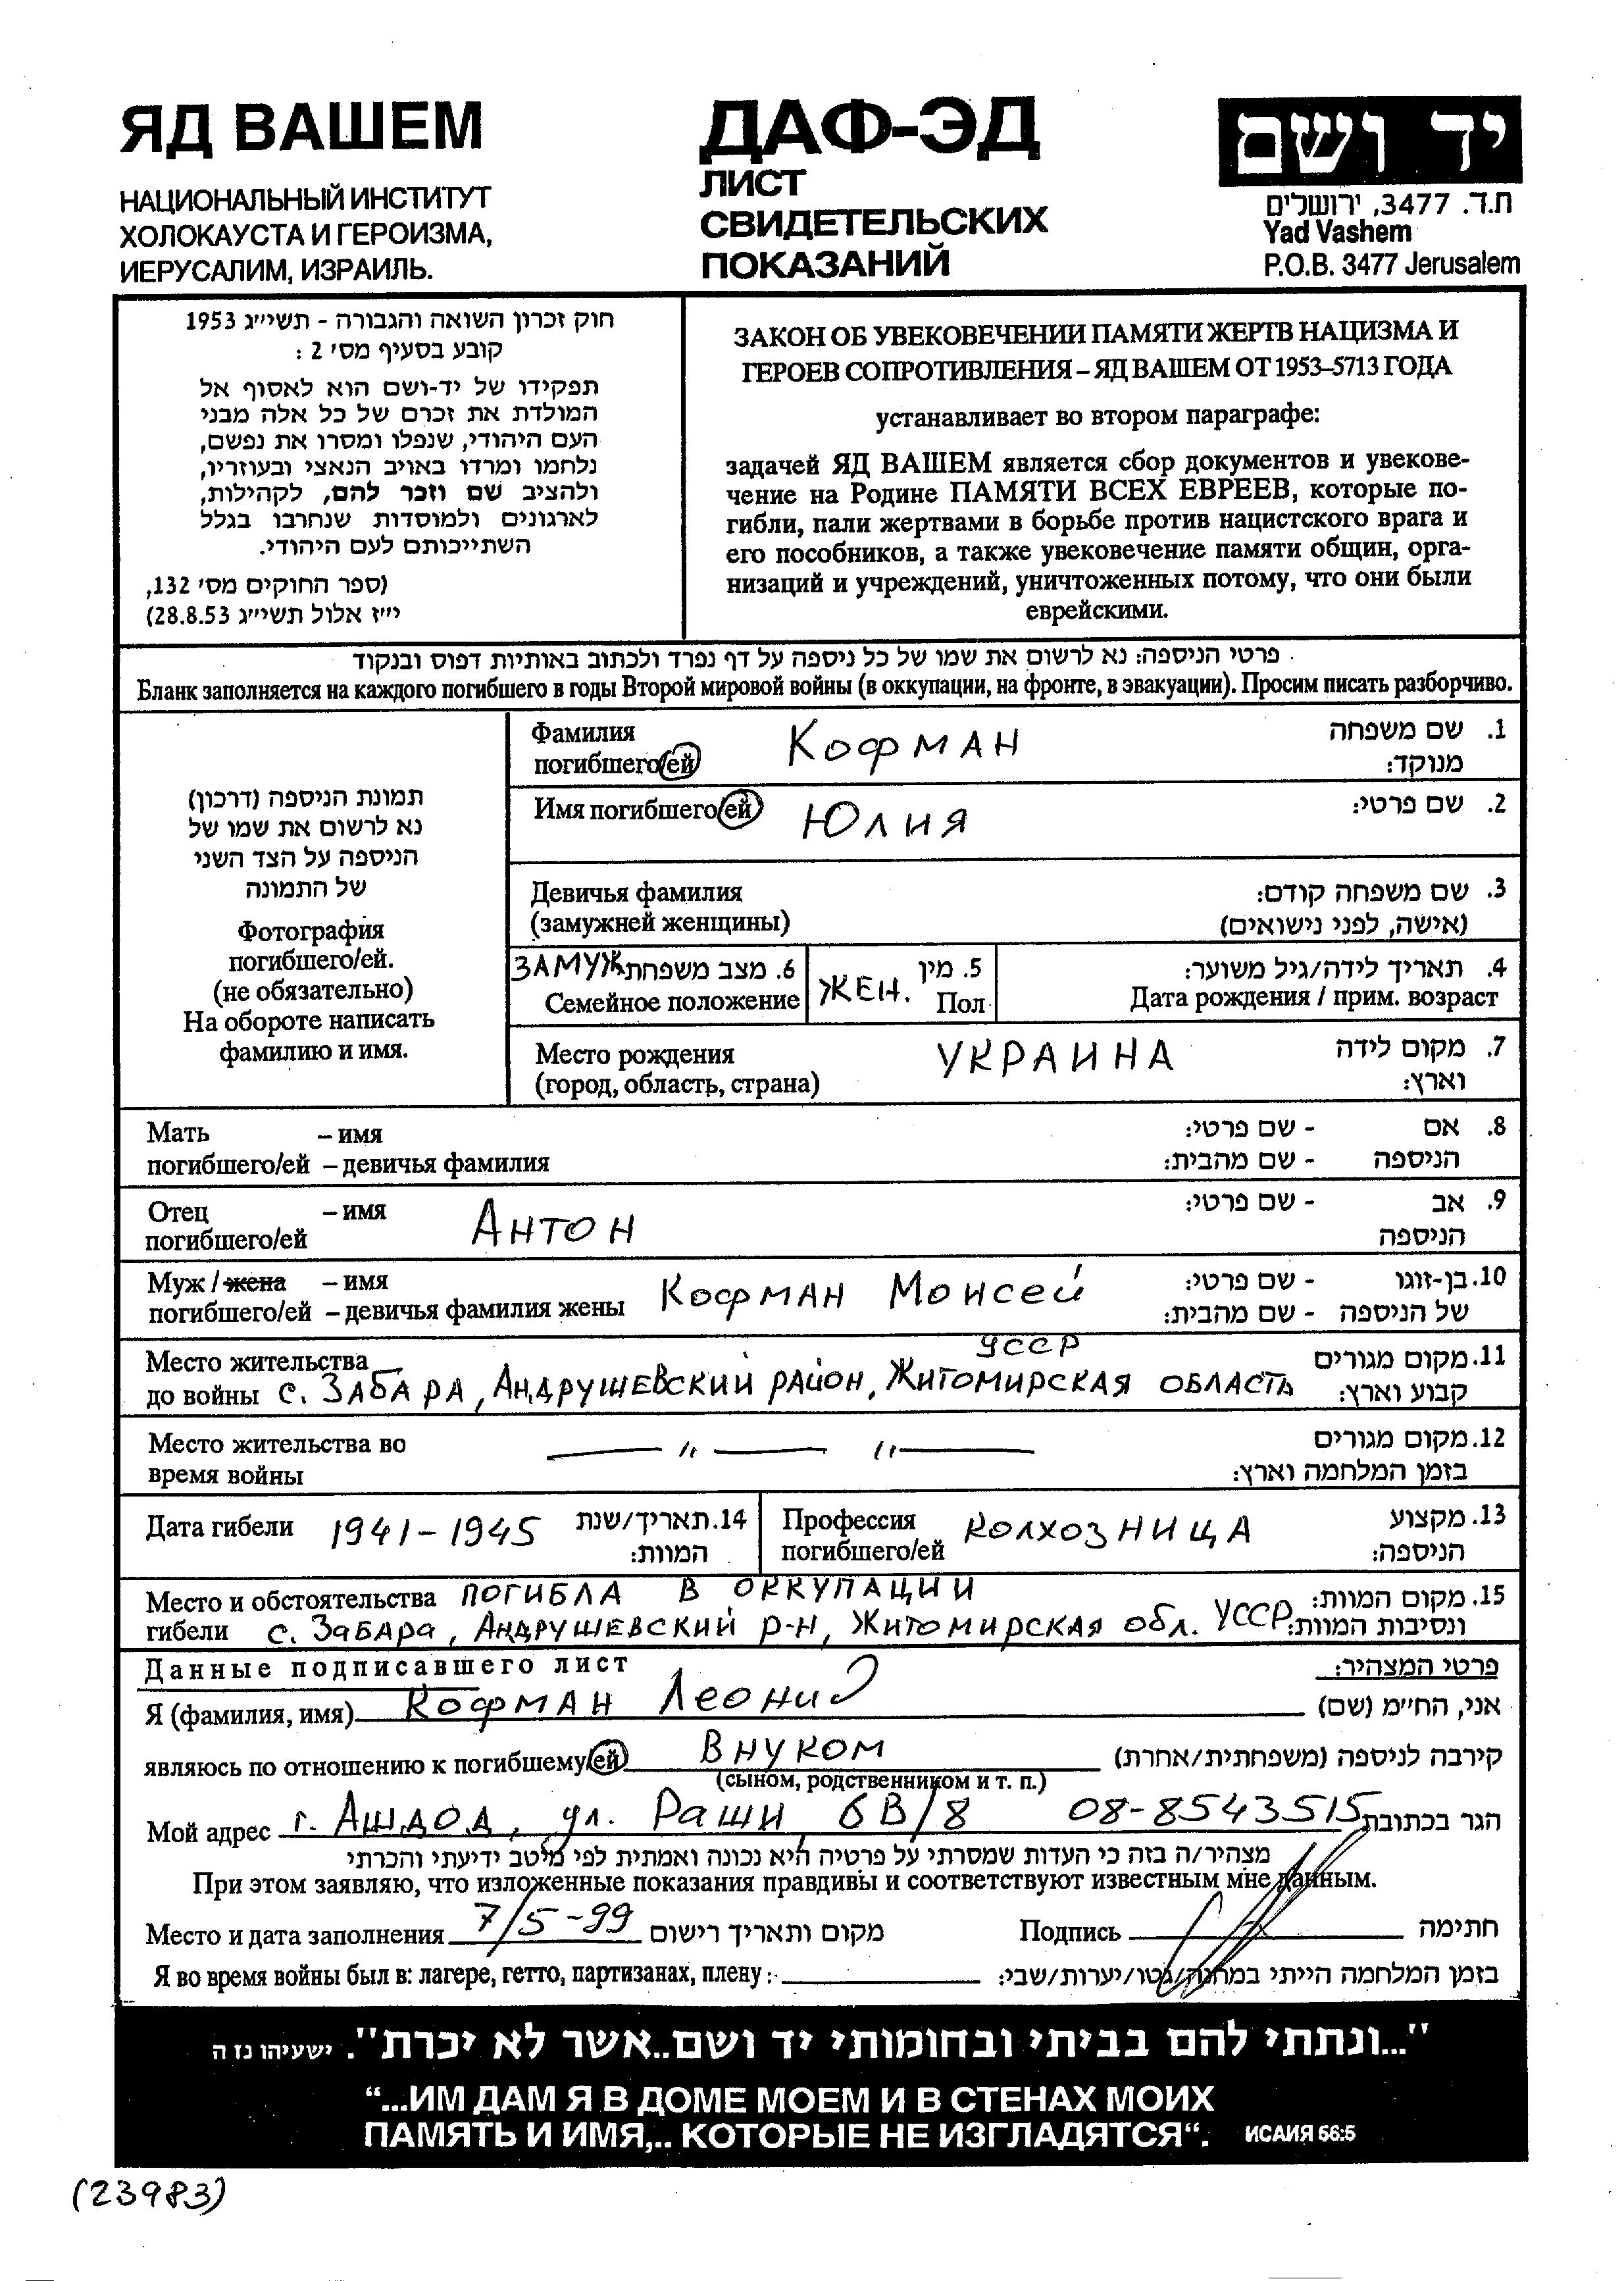 ЯД ВАШЕМ
НАЦИОНАЛЬНЫЙ ИНСТИТУТ
ХОЛОКАУСТА И ГЕРОИЗМА,
ИЕРУСАЛИМ, ИЗРАИЛЬ.
ДАФ-ЭД
ЛИСТ
СВИДЕТЕЛЬСКИХ
ПОКАЗАНИЙ
יד ושם
ת.ד. 3477, ירושלים
Yad Vashem
P.O.B. 3477 Jerusalem
חוק זכרון השואה והגבורה - תשי״ג 1953
קובע בסעיף מס׳ 2 :
תפקידו של יד-ושם הוא לאסוף אל
המולדת את זכרם של כל אלה מבני
העם היהודי, שנפלו ומסרו את נפשם,
נלחמו ומרדו באויב הנאצי ובעוזריו,
ולהציב שם וזכר להם, לקהילות,
לארגונים ולמוסדות שנחרבו בגלל
השתייכותם לעם היהודי.
(ספר החוקים מס׳ 132,
י״ז אלול תשי״ג 28.8.53)
ЗАКОН ОБ УВЕКОВЕЧЕНИИ ПАМЯТИ ЖЕРТВ НАЦИЗМА И
ГЕРОЕВ СОПРОТИВЛЕНИЯ – ЯД ВАШЕМ ОТ 1953–5713 ГОДА
устанавливает во втором параграфе:
задачей ЯД ВАШЕМ является сбор документов и увекове-
чение на Родине ПАМЯТИ ВСЕХ ЕВРЕЕВ, которые по-
гибли, пали жертвами в борьбе против нацистского врага и
его пособников, а также увековечение памяти общин, орга-
низаций и учреждений, уничтоженных потому, что они были
еврейскими.
פרטי הניספה: נא לרשום את שמו של כל ניספה על דף נפרד ולכתוב באותיות דפוס ובנקוד
Бланк заполняется на каждого погибшего в годы Второй мировой войны (в оккупации, на фронте, в эвакуации). Просим писать разборчиво.
תמונת הניספה (דרכון)
נא לרשום את שמו של
הניספה על הצד השני
של התמונה
Фотография
погибшего/ей.
(не обязательно)
На обороте написать
фамилию и имя.
Фамилия КОФМАН 1. שם משפחה
погибшего/ей מנוקד:
Имя погибшего/ей ЮЛИЯ 2. שם פרטי:
Девичья фамилия 3. שם משפחה קודם:
(замужней женщины) (אישה, לפני נישואים)
ЗАМУЖ 6. מצב משפחתי 5. מין 4. תאריך לידה/גיל משוער:
Семейное положение ЖЕН. Пол Дата рождения / прим. возраст
Место рождения УКРАИНА 7. מקום לידה
(город, область, страна) וארץ:
Мать – имя 8. אם - שם פרטי:
погибшего/ей – девичья фамилия הניספה - שם מהבית:
Отец – имя АНТОН 9. אב - שם פרטי:
погибшего/ей הניספה
Муж / жена – имя КОФМАН МОИСЕЙ 10. בן-זוגו - שם פרטי:
погибшего/ей – девичья фамилия жены של הניספה - שם מהבית:
УССР
Место жительства 11. מקום מגורים
до войны с. ЗАБАРА, АНДРУШЕВСКИЙ РАЙОН, ЖИТОМИРСКАЯ ОБЛАСТЬ קבוע וארץ:
Место жительства во — " — " — 12. מקום מגורים
время войны בזמן המלחמה וארץ:
Дата гибели 1941-1945 14. תאריך/שנת
המוות:
Профессия КОЛХОЗНИЦА 13. מקצוע
погибшего/ей הניספה:
Место и обстоятельства ПОГИБЛА В ОККУПАЦИИ 15. מקום המוות:
гибели с. ЗАБАРА, АНДРУШЕВСКИЙ Р-Н, ЖИТОМИРСКАЯ обл. УССР ונסיבות המוות:
Данные подписавшего лист פרטי המצהיר:
Я (фамилия, имя) КОФМАН Леонид אני, הח״מ (שם)
являюсь по отношению к погибшему/ей ВНУКОМ קירבה לניספה (משפחתית/אחרת)
(сыном, родственником и т. п.)
Мой адрес г. АШДОД, ул. Раши 6В/8 08-8543515 הגר בכתובת
מצהיר/ה בזה כי העדות שמסרתי על פרטיה היא נכונה ואמתית לפי מיטב ידיעתי והכרתי
При этом заявляю, что изложенные показания правдивы и соответствуют известным мне данным.
Место и дата заполнения 7/5-99 מקום ותאריך רישום Подпись חתימה
Я во время войны был в: лагере, гетто, партизанах, плену: בזמן המלחמה הייתי במחנה/גטו/יערות/שבי:
"...ונתתי להם בביתי ובחומותי יד ושם..אשר לא יכרת". ישעיהו נז ה
“...ИМ ДАМ Я В ДОМЕ МОЕМ И В СТЕНАХ МОИХ
ПАМЯТЬ И ИМЯ,.. КОТОРЫЕ НЕ ИЗГЛАДЯТСЯ“. ИСАИЯ 56:5
(23983)